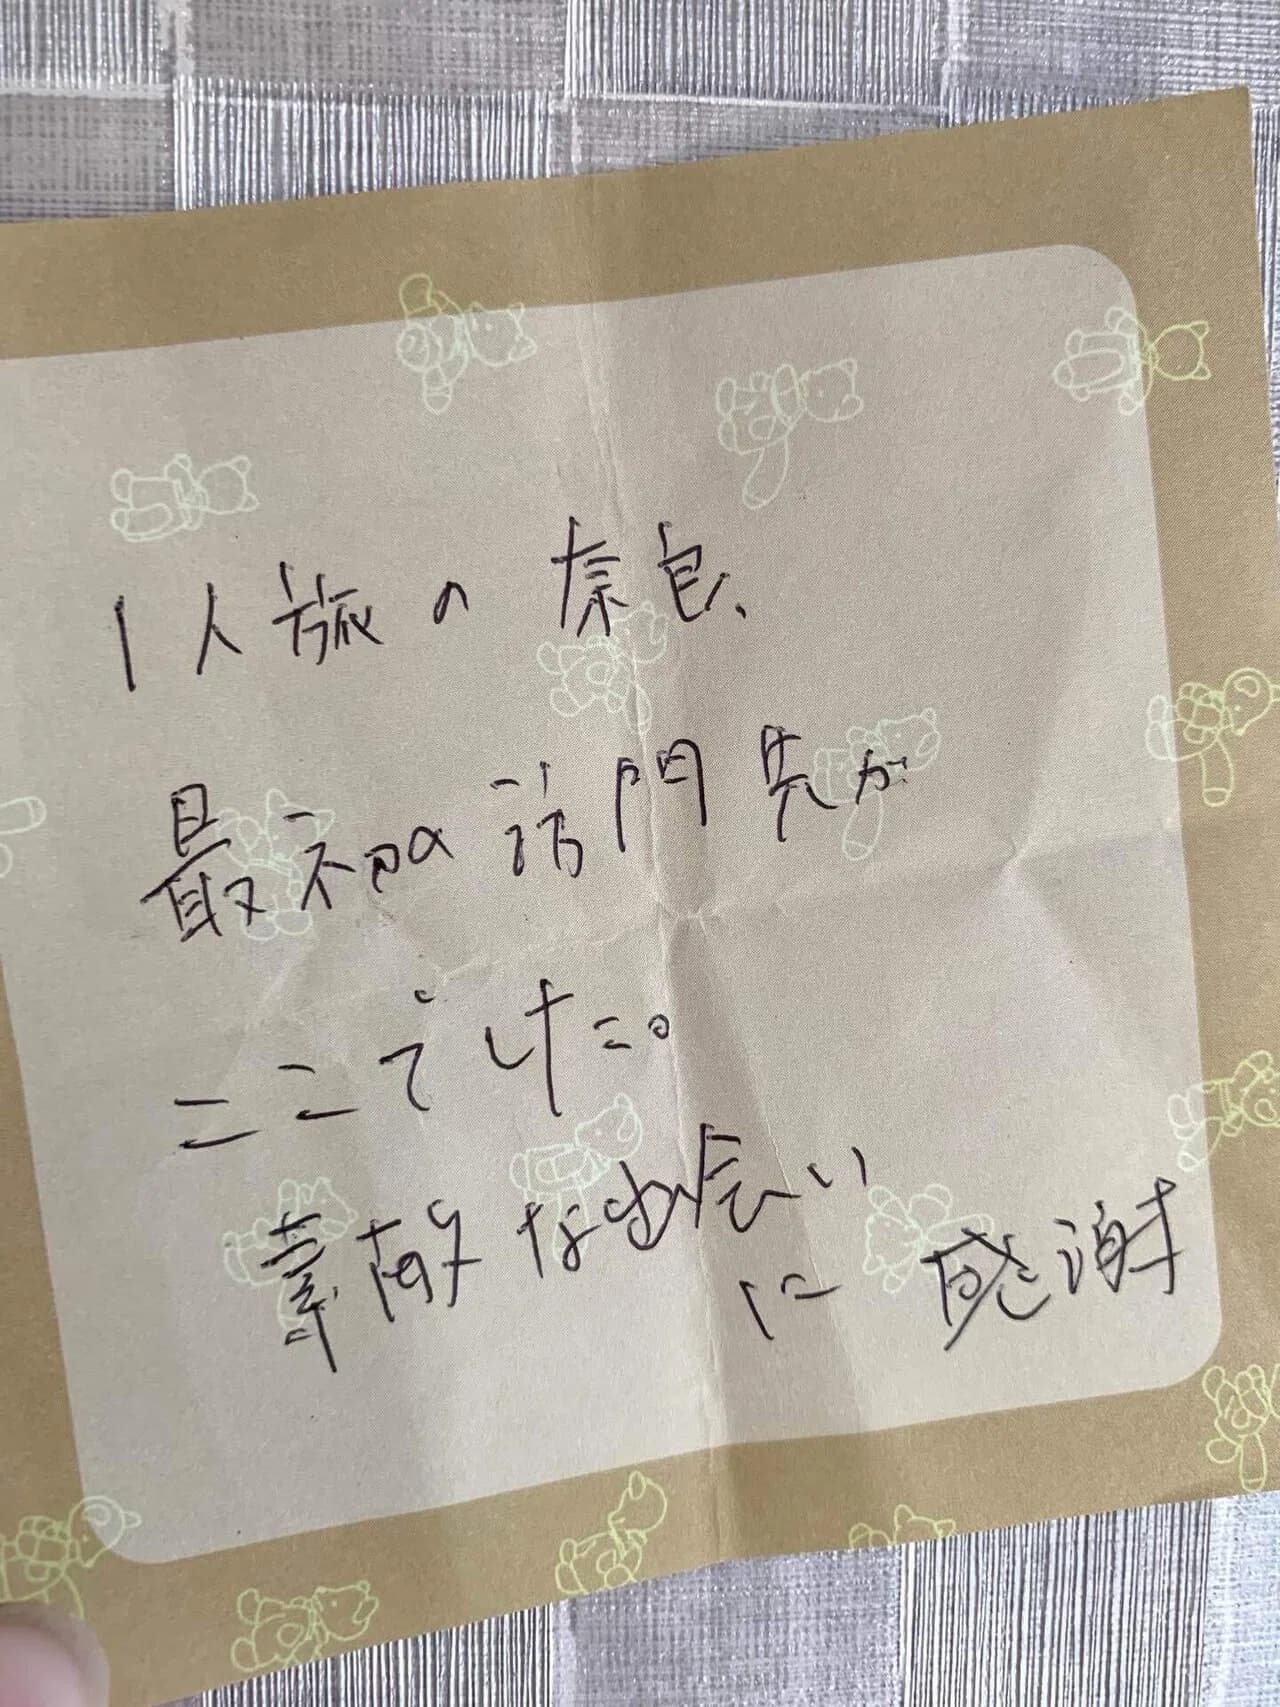 1人旅の奈良、
最初の訪問先が
ここでした。
素敵な出会い
に感謝